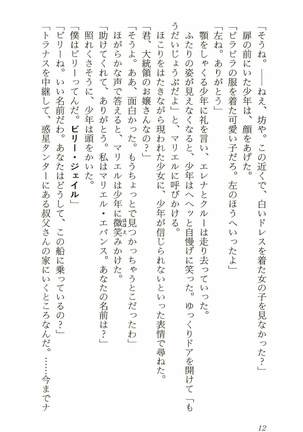 「そうね。――ねえ、坊や。この近くで、白いドレスを着た女の子を見なかった？」
扉の前にいた少年は、顔をあげた。
「ピラピラの服を着た可愛い子だろ。左のほうへいったよ」
「左ね。ありがとう」
顎をしゃくる少年に礼を言い、エレナとクルーは走り去った。
ふたりの姿が見えなくなると、少年はヘヘッと自慢げに笑った。ゆっくりドアを開けて「も
うだいじょうぶだよ」と、マリエルに呼びかける。
ほこりをはたきながら現われた少女に、少年が信じられないといった表情で尋ねた。
「君、大統領のお嬢さんなの？」
「そうよ。ああ、面白かった。もうちょっとで見つかっちゃうとこだったわ」
ほがらかな声で答えると、マリエルは少年に微笑みかけた。
「助けてくれて、ありがとう。私はマリエル・エバンス。あなたの名前は？」
照れくさそうに、少年は頭をかいた。
「僕はビリーってんだ。ビリー・ジェイル」
「ビリーね。いい名前だわ。あなたはどうして、この船に乗っているの？」
「トラナスを中継して、惑星タンターにある叔父さんの家にいくところなんだ。……今までナ
12